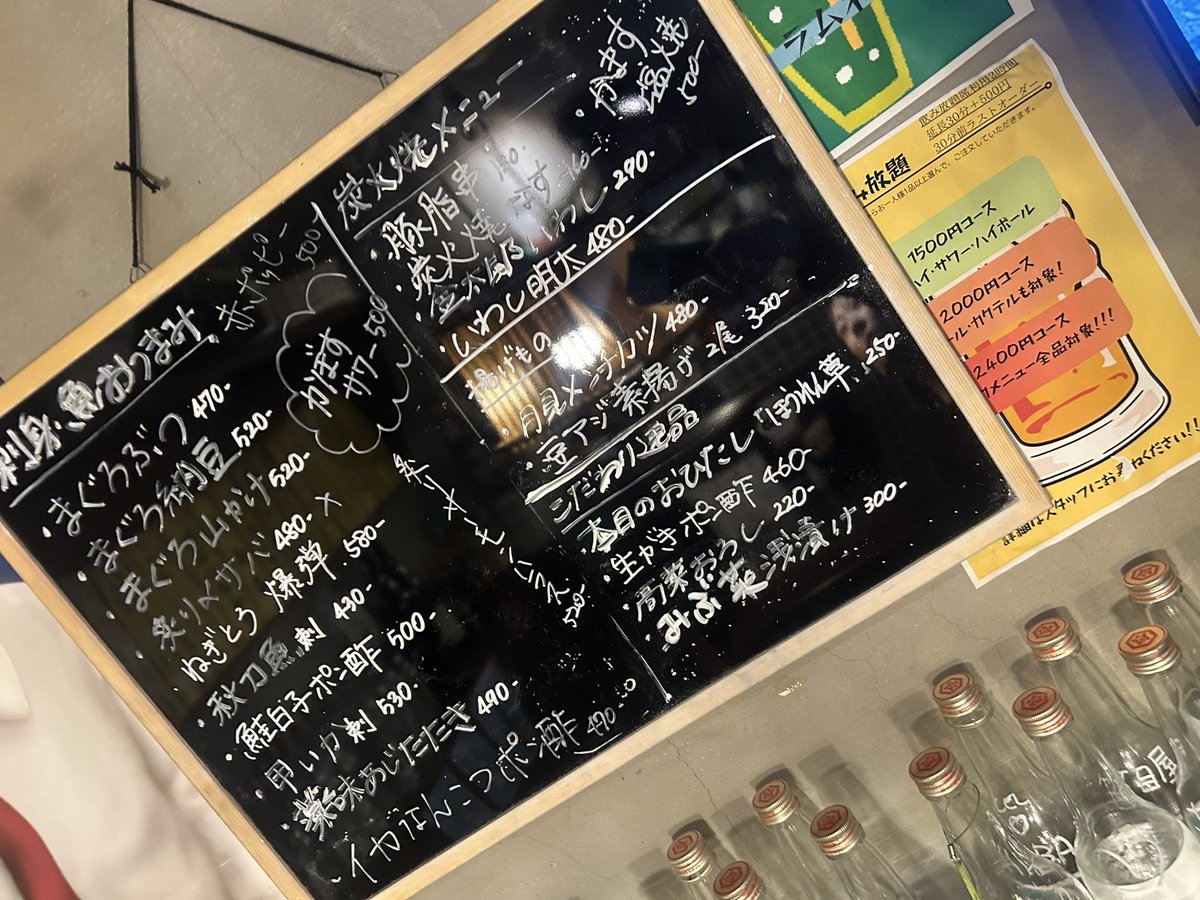 刺身・魚おつまみ
赤ホッピー
500-
・まぐろぶつ 470-
・まぐろ納豆 520-
・まぐろ山かけ 520-
・炙り〆サバ 480- ×
・ねぎとろ爆弾 580-
・秋刀魚刺 430-
・鮭白子ポン酢 500-
・甲いか刺 530-
・薬味あじたたき 490-
・イカなんこつポン酢 490-
かぼす
サワー
500
520-
炭火焼メニュー
・豚脂串 180-
・いわし明太 480-
290-
・かます
塩焼
500-
揚げもの
・月見メンチカツ 480-
・豆アジ素揚げ 2尾 320-
こだわり逸品
・本日のおひたし「ほうれん草」 250-
・生がきポン酢 460-
・高菜おろし 220-
・みぶ菜浅漬け 300-
飲み放題席利用2時間
延長30分+500円
30分前ラストオーダー
放題
らお一人様1品以上選んで、ご注文していただきます。
1500円コース
イ・サワー・ハイボール
2000円コース
ール・カクテルも対象！
2400円コース
メニュー全品対象!!!
はスタッフにお尋ねください!!